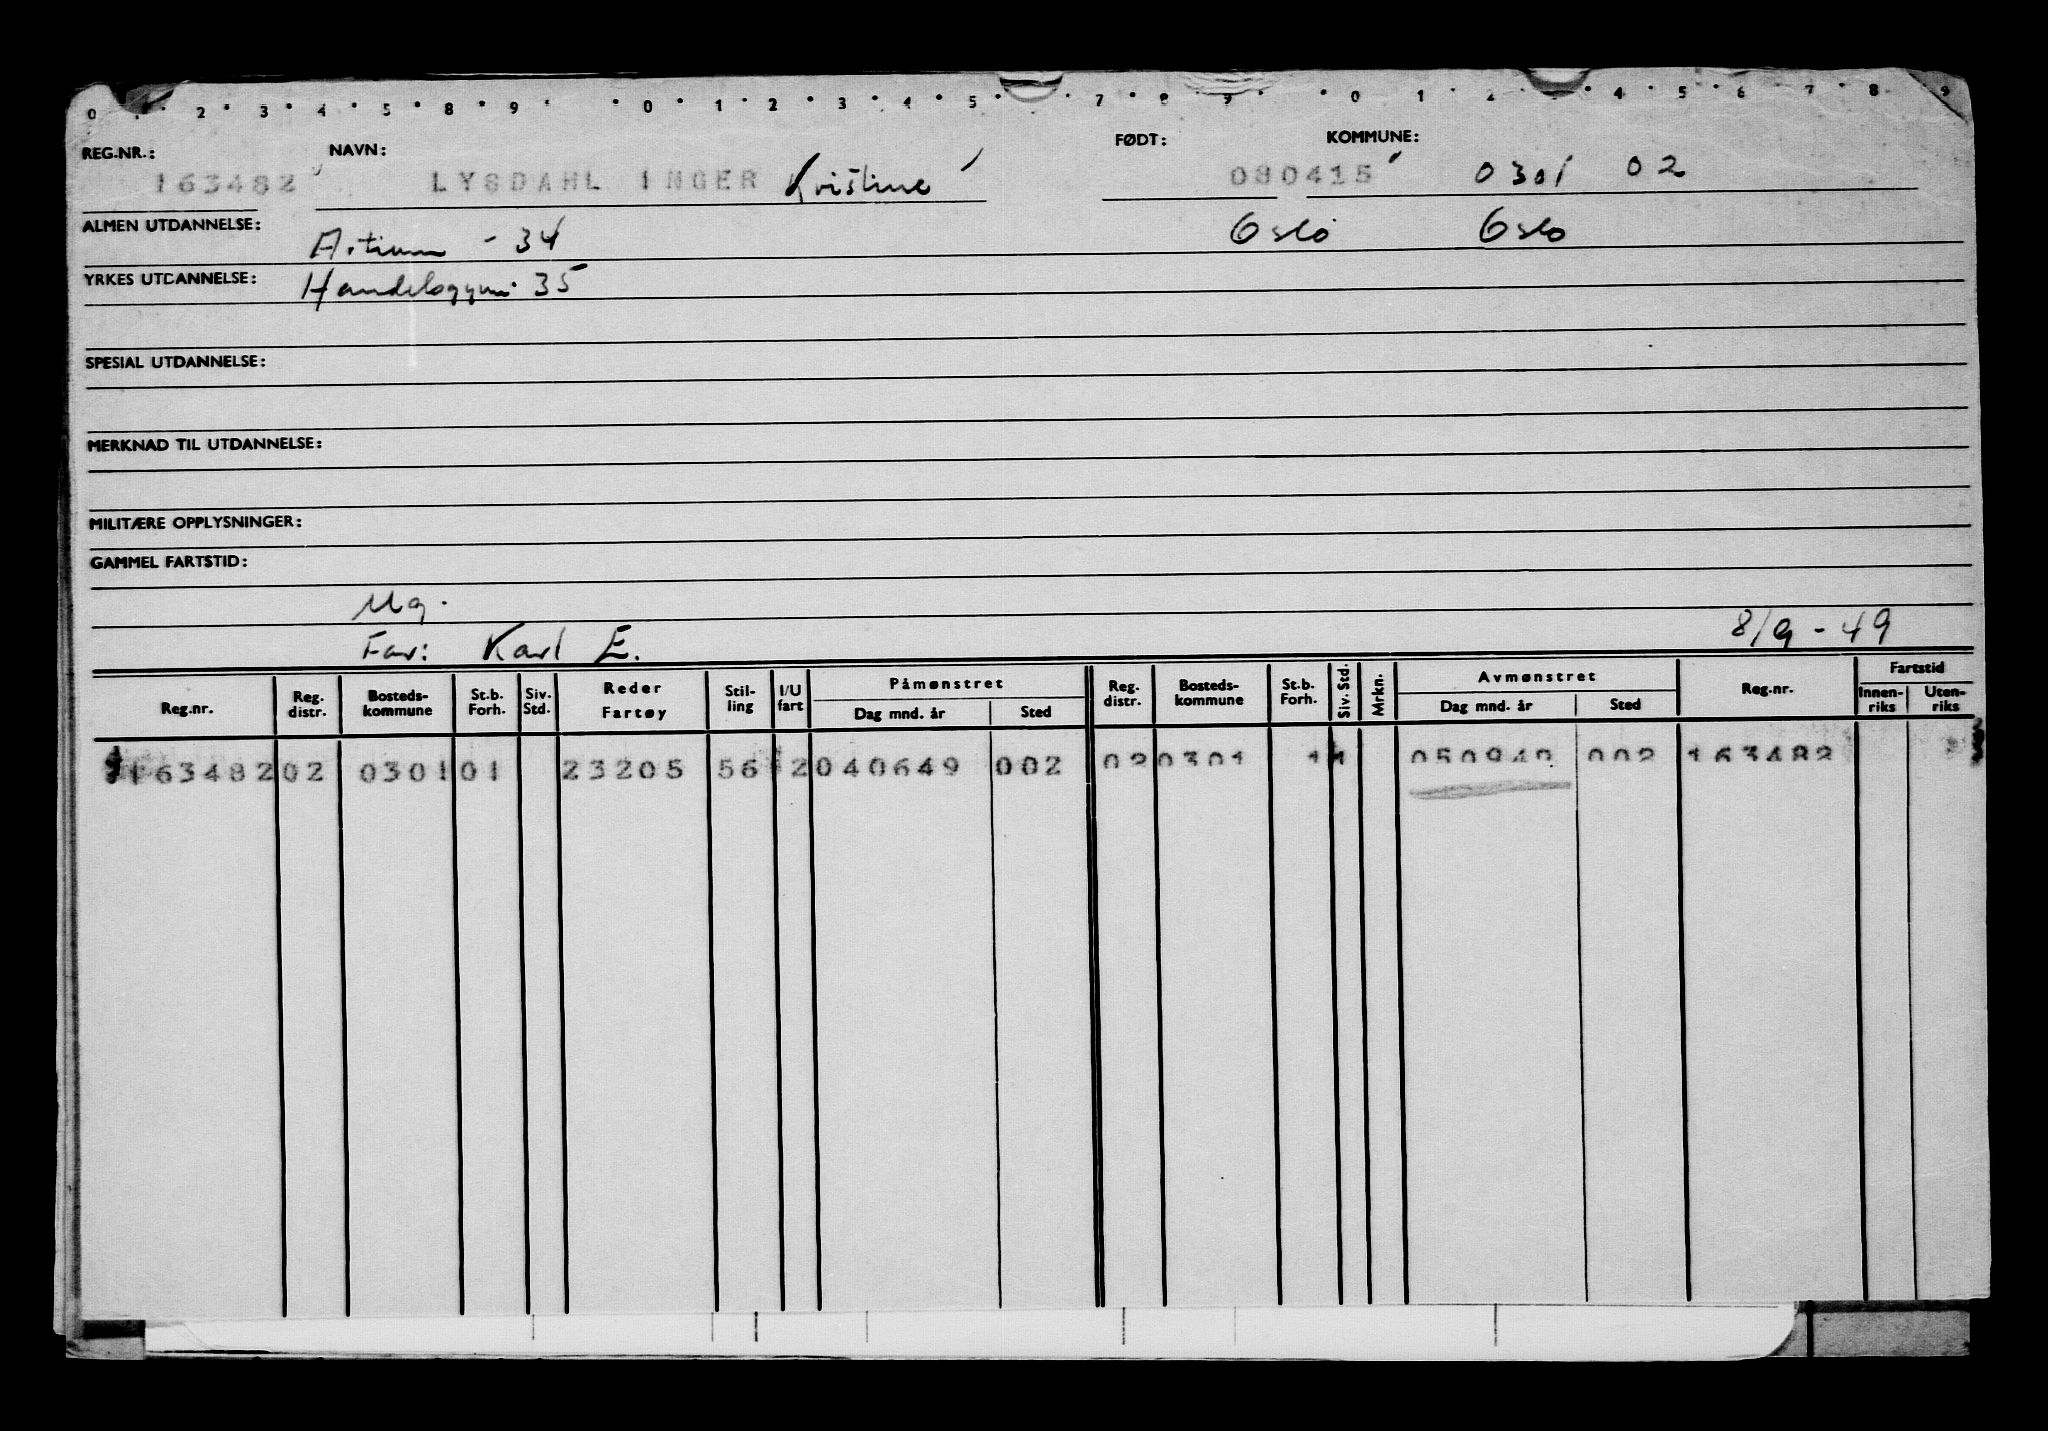 REG.NR.: NAVN: FØDT: KOMMUNE:
163482 LYSDAHL INGER Kristine 080415 0301 02
ALMEN UTDANNELSE: Artium - 34 Oslo Oslo
YRKES UTDANNELSE: Handelsgymn. 35
SPESIAL UTDANNELSE:
MERKNAD TIL UTDANNELSE:
MILITÆRE OPPLYSNINGER:
GAMMEL FARTSTID:
Ug.
Far: Karl E. 8/9 - 49
Reg.nr. Reg. distr. Bosteds-kommune St.b. Forh. Siv. Std. Reder Fartøy Stil-ling I/U fart Påmønstret Dag mnd. år Sted Reg. distr. Bosteds-kommune St.b. Forh. Siv. Std. Mrkn. Avmønstret Dag mnd. år Sted Reg.nr. Fartstid Innen-riks Uten-riks
163482 02 0301 01 23205 56 2 040649 002 02 0301 1 1 050949 002 163482